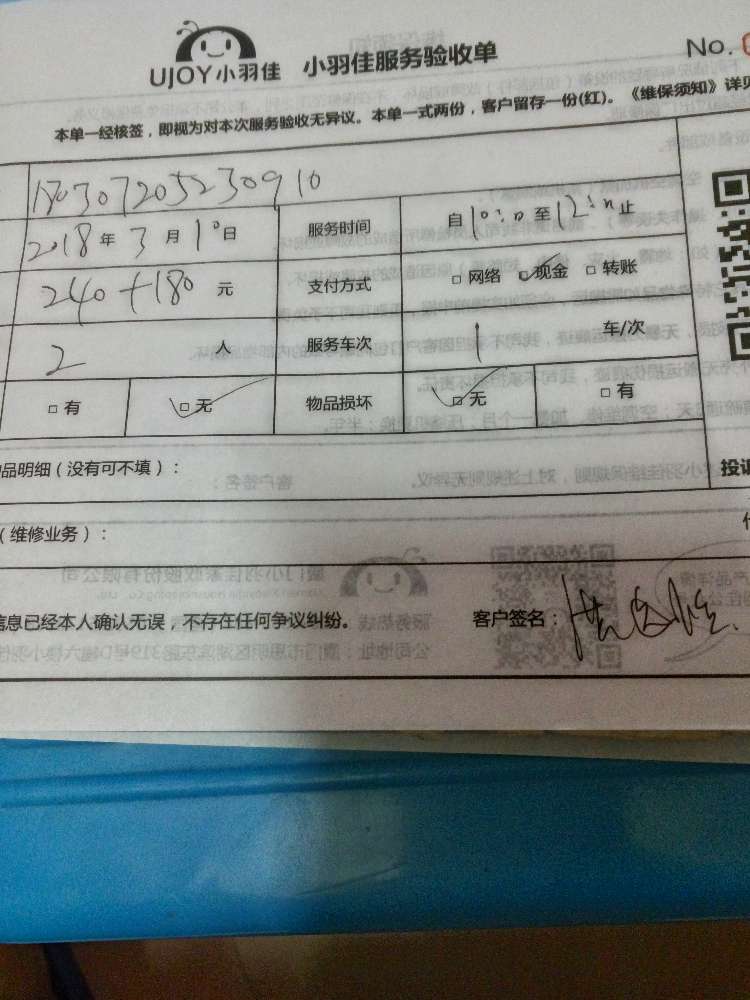 UJOY小羽佳 小羽佳服务验收单 No.
本单一经核签，即视为对本次服务验收无异议。本单一式两份，客户留存一份(红)。《维保须知》详见
180307205230910
2018年3月10日 服务时间 自10:00至12:00止
240+180元 支付方式 □网络 ☑现金 □转账
2人 服务车次 1 车/次
□有 ☑无 物品损坏 ☑无 □有
品明细（没有可不填）：
投诉
（维修业务）：
信息已经本人确认无误，不存在任何争议纠纷。 客户签名：